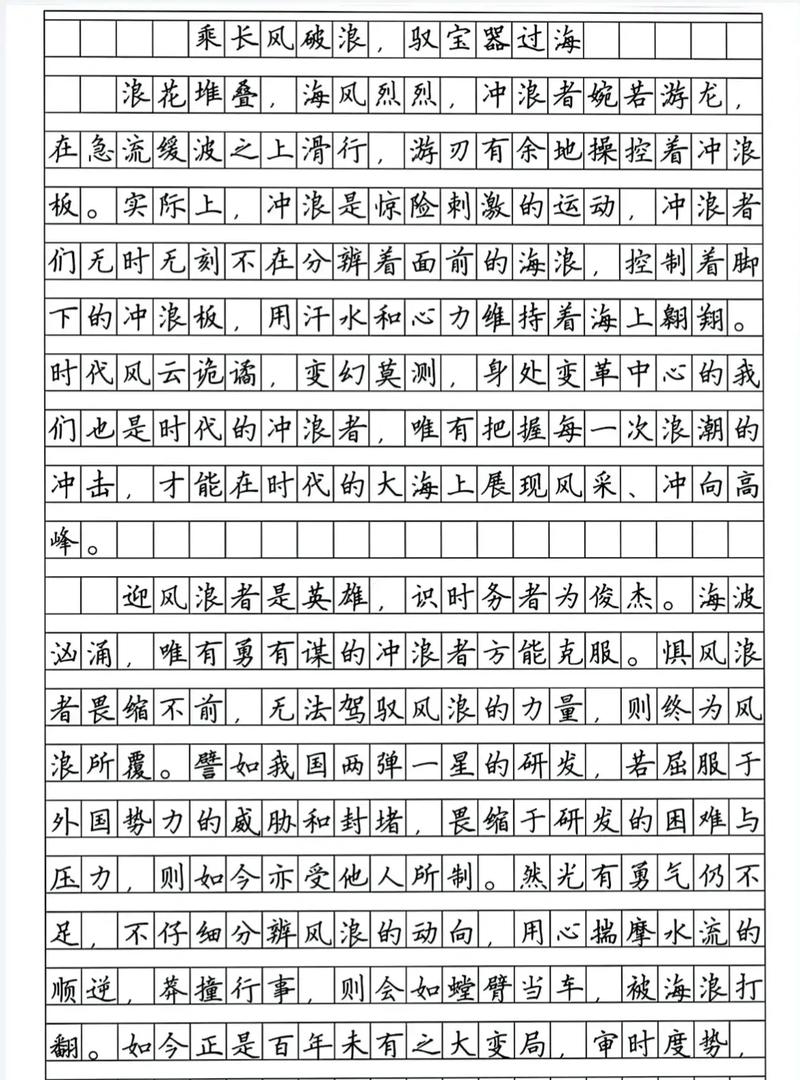 乘长风破浪，驭宝器过海
浪花堆叠，海风烈烈，冲浪者婉若游龙，
在急流缓波之上滑行，游刃有余地操控着冲浪
板。实际上，冲浪是惊险刺激的运动，冲浪者
们无时无刻不在分辨着面前的海浪，控制着脚
下的冲浪板，用汗水和心力维持着海上翱翔。
时代风云诡谲，变幻莫测，身处变革中心的我
们也是时代的冲浪者，唯有把握每一次浪潮的
冲击，才能在时代的大海上展现风采、冲向高
峰。
迎风浪者是英雄，识时务者为俊杰。海波
汹涌，唯有勇有谋的冲浪者方能克服。惧风浪
者畏缩不前，无法驾驭风浪的力量，则终为风
浪所覆。譬如我国两弹一星的研发，若屈服于
外国势力的威胁和封堵，畏缩于研发的困难与
压力，则如今亦受他人所制。然光有勇气仍不
足，不仔细分辨风浪的动向，用心揣摩水流的
顺逆，莽撞行事，则会如螳臂当车，被海浪打
翻。如今正是百年未有之大变局，审时度势，